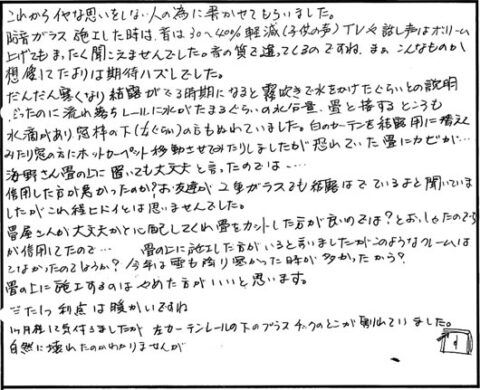 これからイヤな思いをしない人の為に書かせてもらいました。
防音ガラス施工した時は、音は30〜40%軽減(子供の声)TVや話し声はボリューム
上げてもまったく聞こえませんでした。音の質で違ってくるのですね、まぁ、こんなものか
想像してたよりは期待ハズレでした。
だんだん寒くなり結露がでる時期になると霧吹きで水をかけたぐらいとの説明
だったのに流れ落ちレールに水がたまるぐらいの水分量、畳と接するところも
水滴があり窓枠の下(ぐらい)のもぬれていました。白のカーテンを結露用に替えて
みたり窓の方にホットカーペット移動させてみたりしましたが恐れていた畳にカビが…
海野さん畳の上に置いても大丈夫と言ったのでは…
信用した方が悪かったのか?お友達が2重ガラスでも結露はでているよと聞いていま
したがこれ程ヒドイとは思いませんでした。
畳屋さんが大丈夫かと心配してくれ畳をカットした方が良いのでは?とおっしゃたのですが
が信用してたので… 畳の上に施工した方がいると言いましたがこのようなクレームは
でなかったのでしょうか?今年は雪も降り寒かった時が多かったから?
畳の上に施工するのはやめた方がいいと思います。
たった1つ利点は暖かいですね
1ヶ月程して気付きましたが左カーテンレールの下のプラスチックのとこが割れていました。
自然に壊れたのかわかりませんが